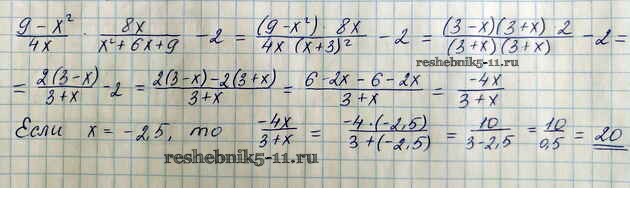 (9-x²)/(4x) · (8x)/(x²+6x+9) - 2 = ((9-x²)·8x)/(4x(x+3)²) - 2 = ((3-x)(3+x)·2)/((3+x)(3+x)) - 2 =
reshebnik5-11.ru
= (2(3-x))/(3+x) - 2 = (2(3-x)-2(3+x))/(3+x) = (6-2x-6-2x)/(3+x) = (-4x)/(3+x)
Если x = -2,5, то (-4x)/(3+x) = (-4·(-2,5))/(3+(-2,5)) = 10/(3-2,5) = 10/0,5 = 20
reshebnik5-11.ru